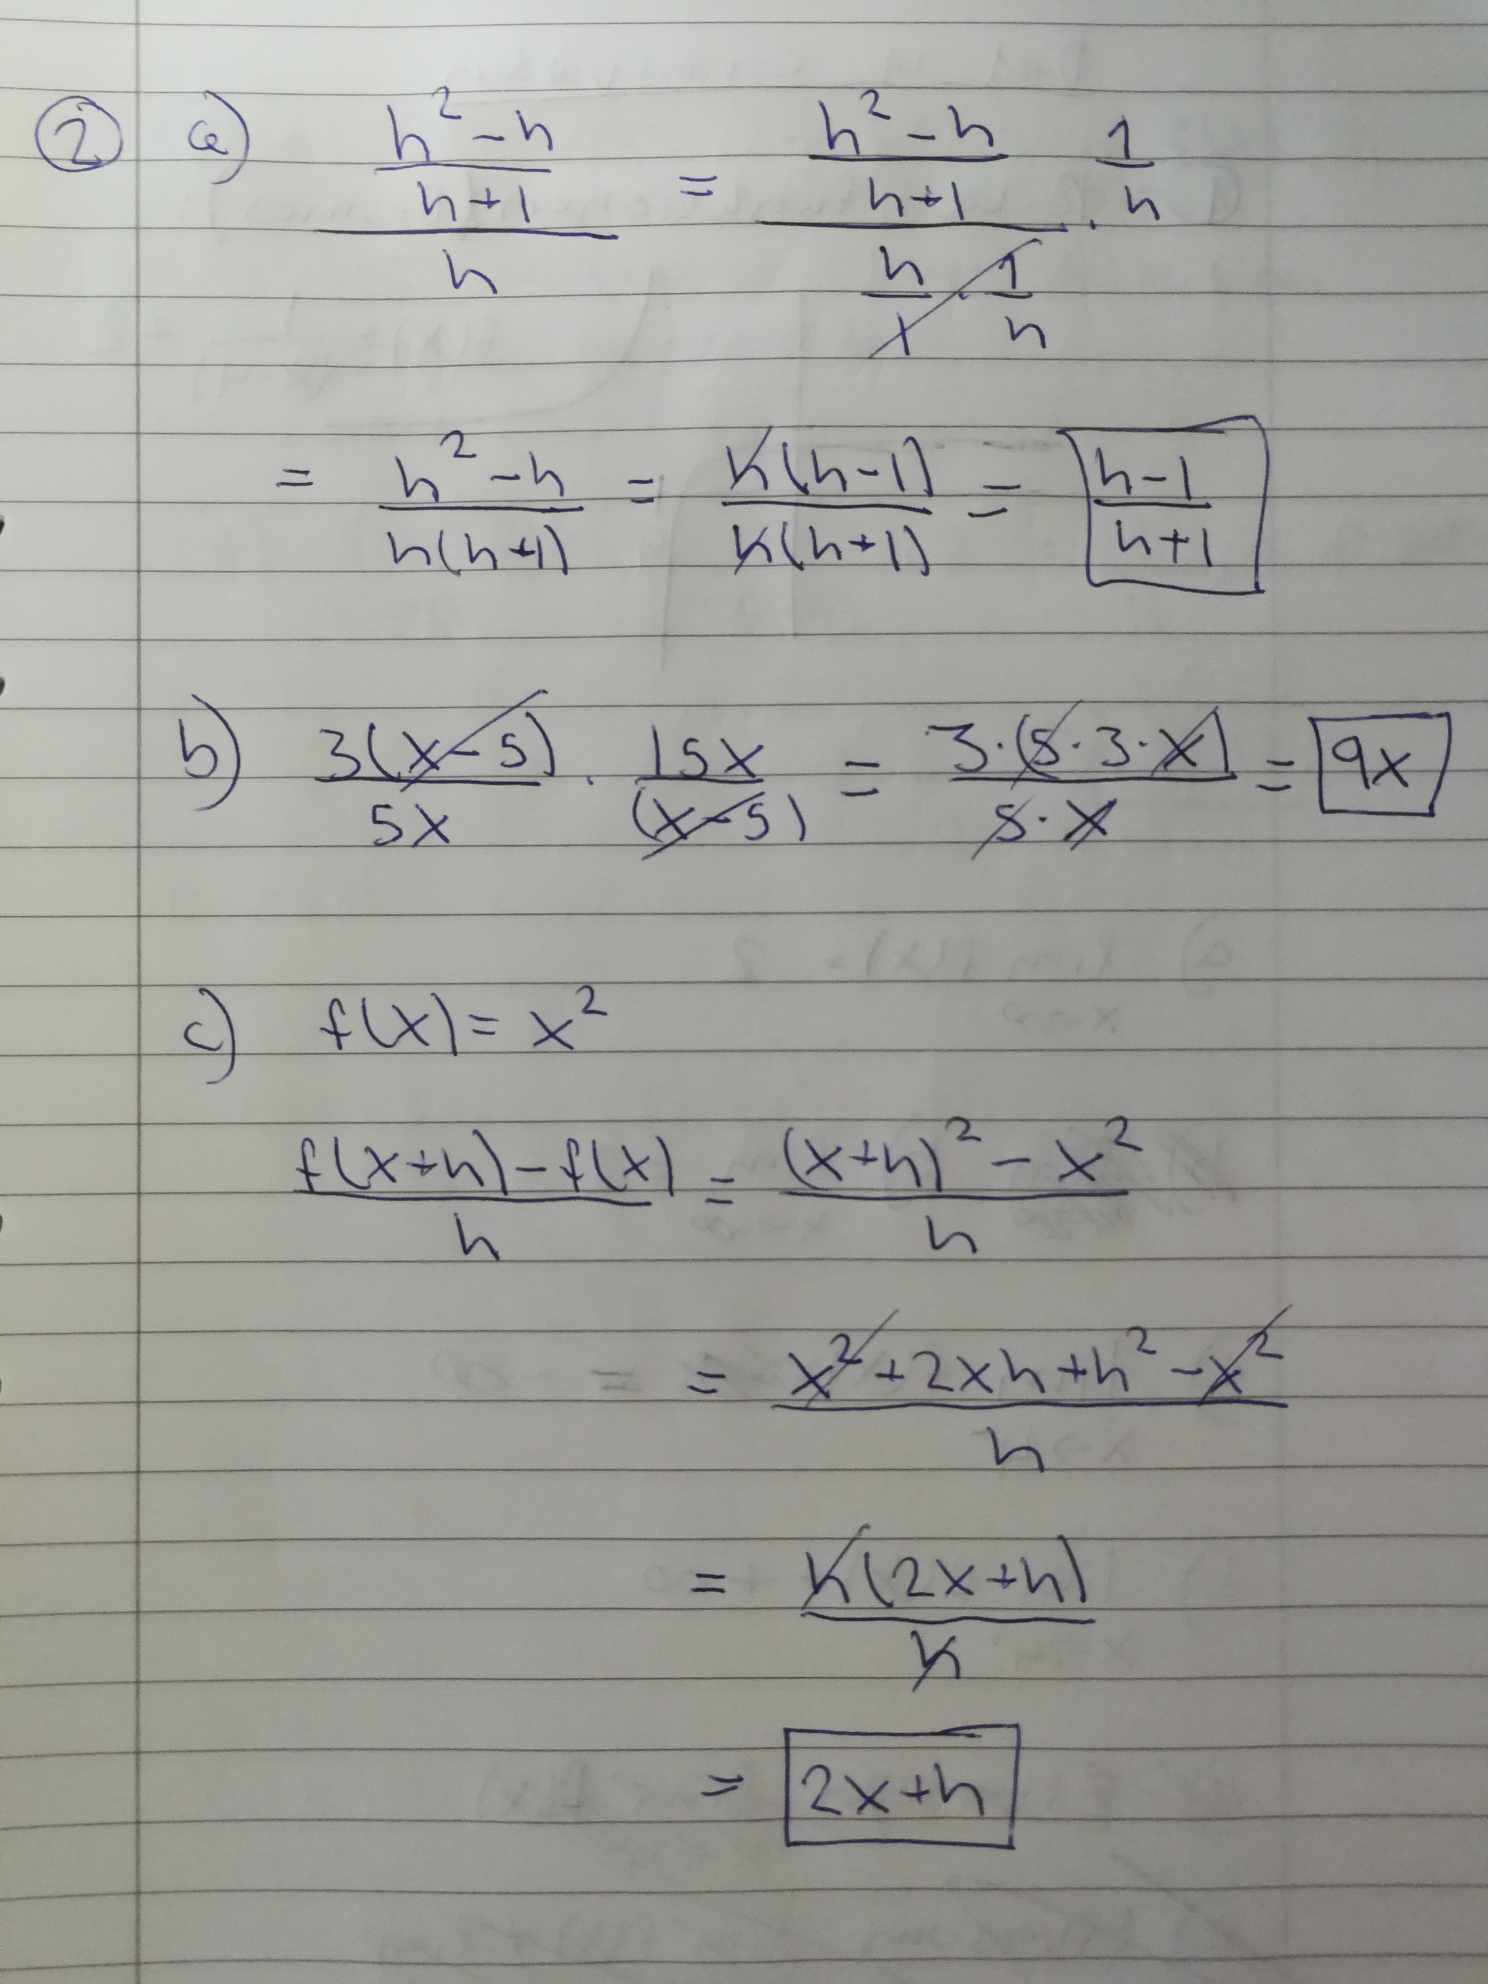 ② a) \frac{\frac{h^2-h}{h+1}}{h} = \frac{\frac{h^2-h}{h+1} \cdot \frac{1}{h}}{\frac{h}{1} \cdot \frac{1}{h}}
= \frac{h^2-h}{h(h+1)} = \frac{h(h-1)}{h(h+1)} = \frac{h-1}{h+1}
b) \frac{3(x-5)}{5x} \cdot \frac{15x}{(x-5)} = \frac{3 \cdot (5 \cdot 3 \cdot x)}{5 \cdot x} = 9x
c) f(x) = x^2
\frac{f(x+h)-f(x)}{h} = \frac{(x+h)^2-x^2}{h}
= \frac{x^2+2xh+h^2-x^2}{h}
= \frac{h(2x+h)}{h}
= 2x+h